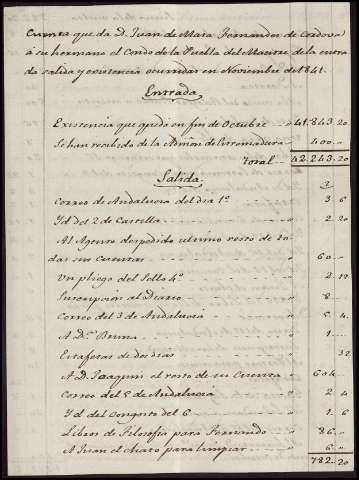 Cuenta que da D. Juan de Mata Fernandez de Cordova
á su hermano el Conde de la Puebla del Maestre de la entra
da salida y existencia ocurridas en Noviembre de 1841.
Entrada
Existencia que quedó en fin de Octubre 41.843.20
Se han recibido de la Admon de Extremadura 400
Total 42.243.20
Salida
Correo de Andalucia del dia 1º 3 6
Yd del 2 de Castilla 2 20
Al Agente despedido ultimo resto de to
das sus cuentas 60
Un pliego del Sello 4º 2 12
Suscripcion al Diario 8
Correo del 3 de Andalucia 5 4
A D.ª 1
Estafetas de dos dias 32
A D. Joaquin el resto de su Cuenta 604
Correo del 5 de Andalucia 2 4
Yd del Congreso del 6 1 6
Libros de Filosofia para Fernando 86
A Juan el Chato para limpiar 6
782 20